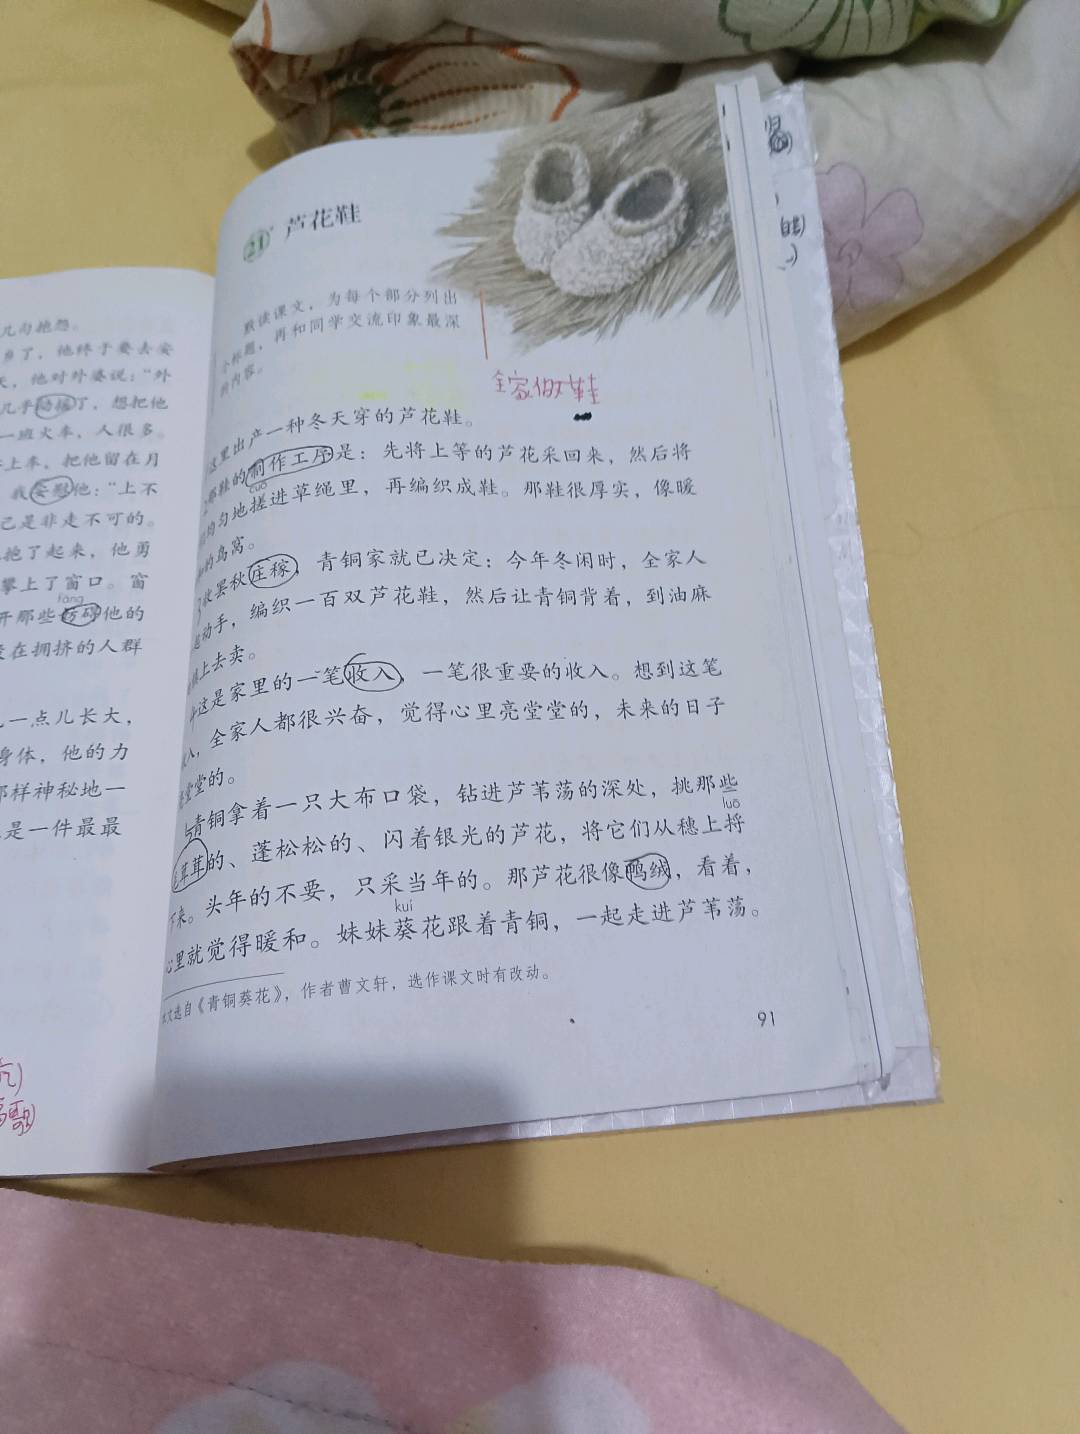 几句抱怨。
乡了，他终于要去安
天，他对外婆说：“外
几乎动摇了，想把他
一班火车，人很多。
上车，把他留在月
我安慰他：“上不
己是非走不可的。
抱了起来，他勇
攀上了窗口。窗
fáng
开那些妨碍他的
在拥挤的人群
一点儿长大，
身体，他的力
那样神秘地一
是一件最最
21 芦花鞋
默读课文，为每个部分列出
个标题，再和同学交流印象最深
的内容。
全家做鞋
这里出产一种冬天穿的芦花鞋。
那鞋的制作工序是：先将上等的芦花采回来，然后将
cuō
均匀地搓进草绳里，再编织成鞋。那鞋很厚实，像暖
的鸟窝。
收罢秋庄稼，青铜家就已决定：今年冬闲时，全家人
起动手，编织一百双芦花鞋，然后让青铜背着，到油麻
镇上去卖。
这是家里的一笔收入，一笔很重要的收入。想到这笔
收入，全家人都很兴奋，觉得心里亮堂堂的，未来的日子
亮堂堂的。
青铜拿着一只大布口袋，钻进芦苇荡的深处，挑那些
luō
毛茸茸的、蓬松松的、闪着银光的芦花，将它们从穗上捋
下来。头年的不要，只采当年的。那芦花很像鸭绒，看着，
kuí
心里就觉得暖和。妹妹葵花跟着青铜，一起走进芦苇荡。
本文选自《青铜葵花》，作者曹文轩，选作课文时有改动。
91